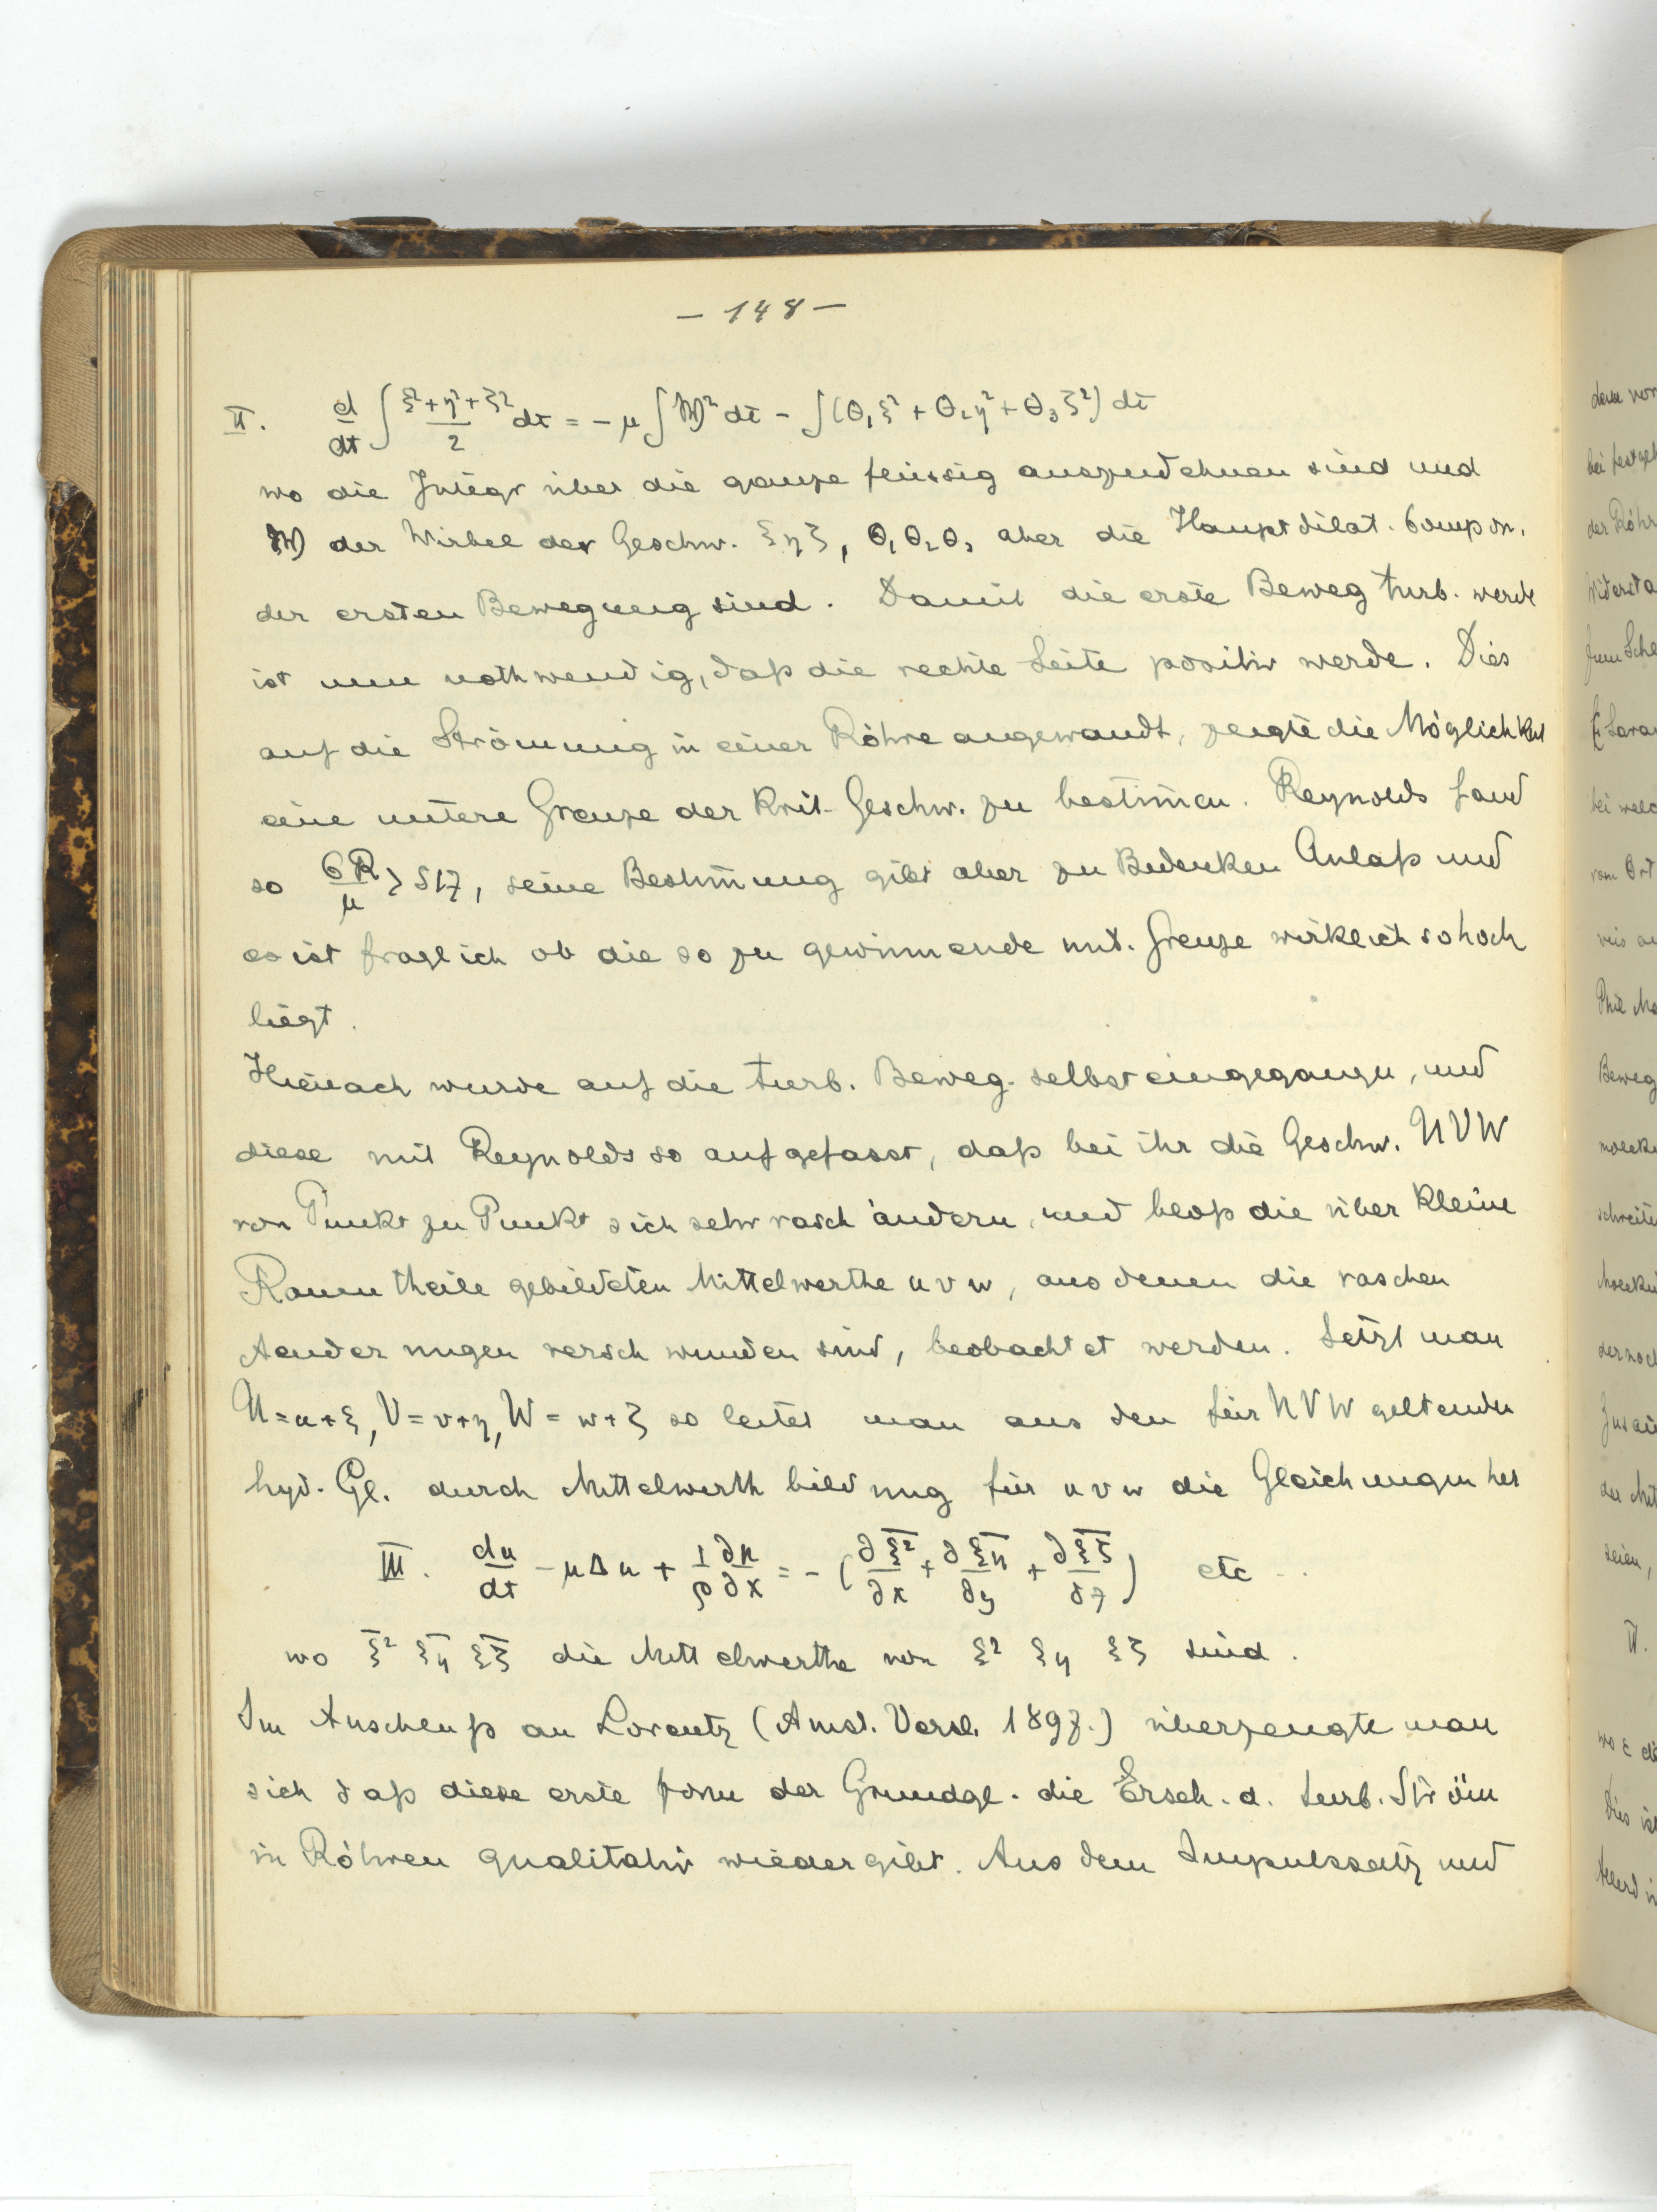 – 148 –
II. d/dt ∫ (ξ²+η²+ζ²)/2 dτ = – μ ∫ 𝔚² dτ – ∫ (θ₁ξ² + θ₂η² + θ₃ζ²) dτ
wo die Integr über die ganze flüssig auszudehnen sind und
𝔚 der Wirbel der Geschw. ξηζ, θ₁θ₂θ₃ aber die Hauptdilat. Compon.
der ersten Bewegung sind. Damit die erste Beweg turb. werde
ist nun nothwendig, daß die rechte Seite positiv werde. Dies
auf die Strömung in einer Röhre angewandt, zeigte die Möglichkeit
eine untere Grenze der Krit. Geschw. zu bestim̄en. Reynolds fand
so σR/μ > 517, seine Bestim̄ung gibt aber zu Bedenken Anlaß und
es ist fraglich ob die so zu gewinnende unt. Grenze wirklich so hoch
liegt.
Hienach wurde auf die turb. Beweg. selbst eingegangen, und
diese mit Reynolds so aufgefasst, daß bei ihr die Geschw. U V W
von Punkt zu Punkt sich sehr rasch ändern, und bloß die über kleine
Raumtheile gebildeten Mittelwerthe u v w, aus denen die raschen
Aenderungen verschwunden sind, beobachtet werden. Setzt man
U = u+ξ, V = v+η, W = w+ζ so leitet man aus den für U V W geltenden
hyd. Gl. durch Mittelwerthbildung für u v w die Gleichungen her
III. du/dt – μΔu + 1/ρ ∂p/∂x = – (∂ξ̅²/∂x + ∂ξ̅η̅/∂y + ∂ξ̅ζ̅/∂z) etc ..
wo ξ̅² ξ̅η̅ ξ̅ζ̅ die Mittelwerthe von ξ² ξη ξζ sind.
Im Anschluß an Lorentz (Amst. Versl. 1897.) überzeugte man
sich daß diese erste Form der Grundgl. die Ersch. d. turb. Ström
in Röhren qualitativ wiedergibt. Aus dem Impulssatz und